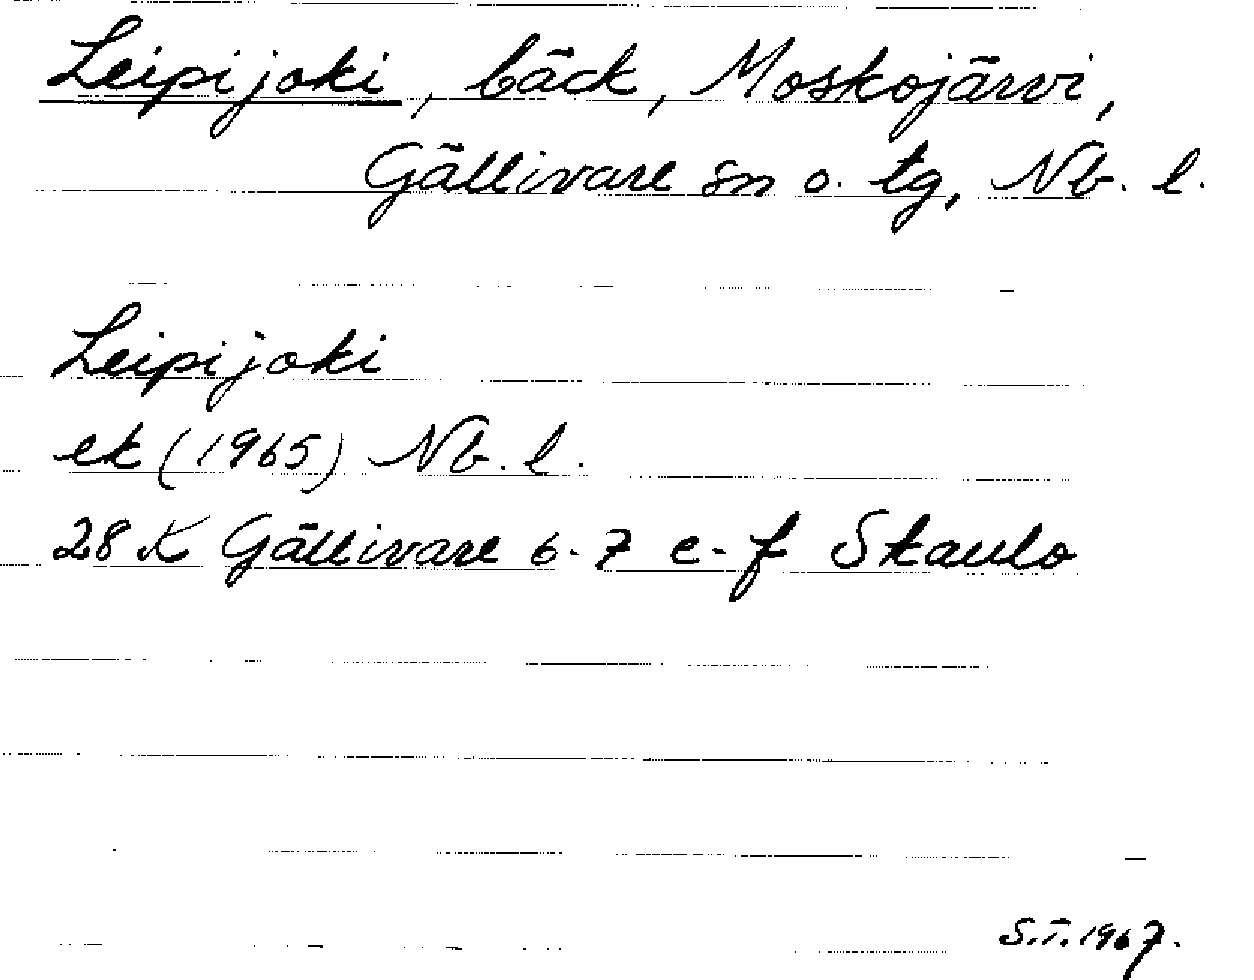 Leipijoki, bäck, Moskojärvi,
Gällivare sn o. tg, Nb. l.
Leipijoki
ek (1965) Nb. l.
28 K Gällivare 6-7 e-f Skaulo
S.T. 1967.